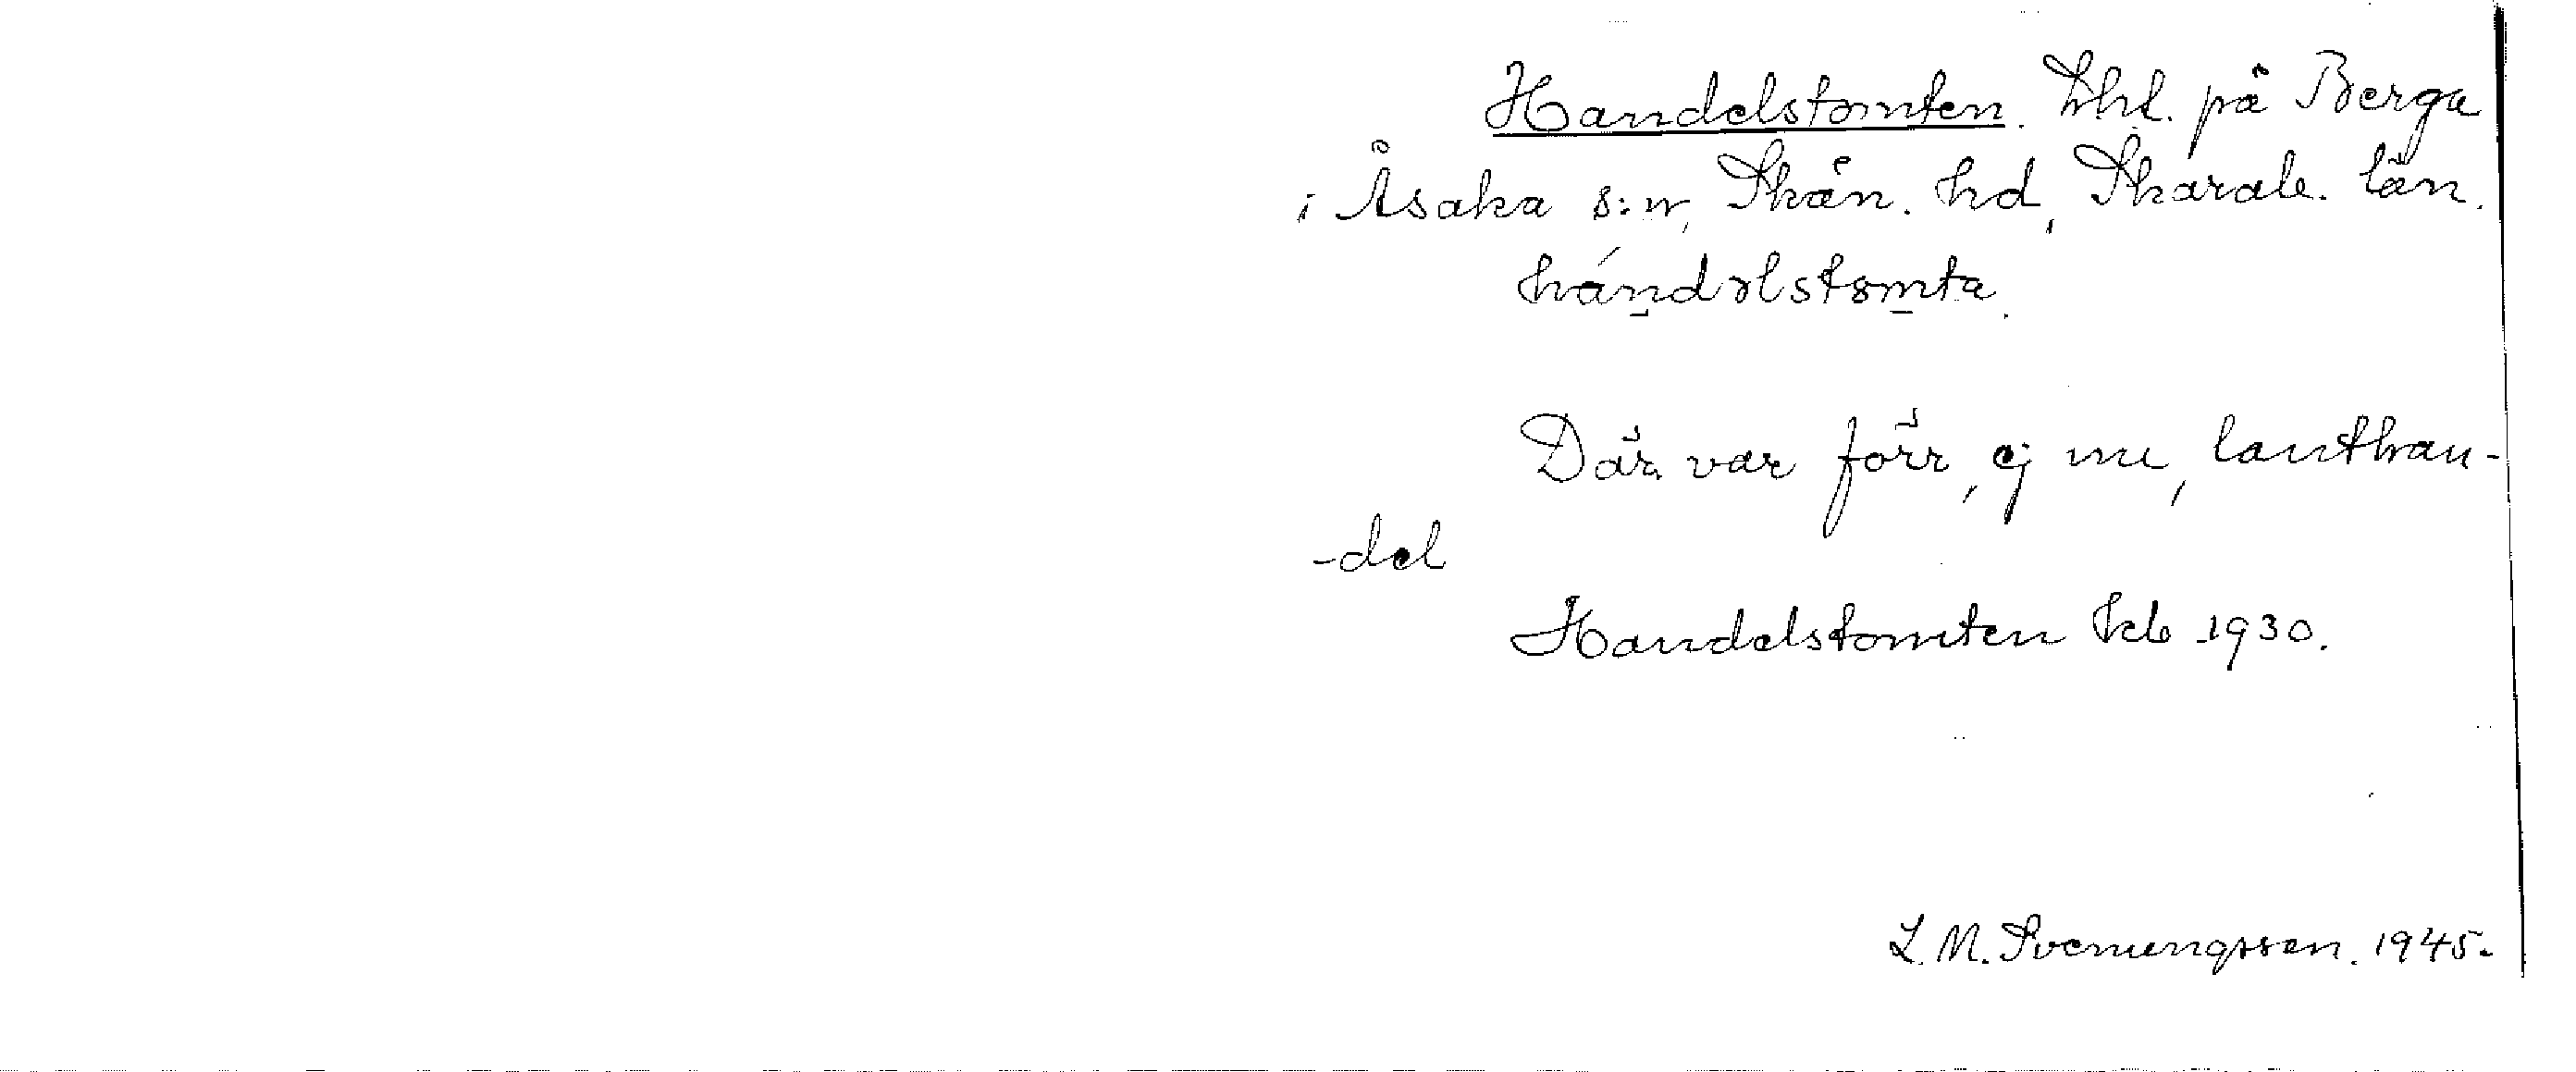 Handelstomten. Lht. på Berga
i Åsaka s:n, Skån. hd, Skarab. län.
hándəlstomta.
Där var förr, ej nu, lanthan-
-del
Handelstomten kb 1930.
L. M. Svenungsson. 1945.